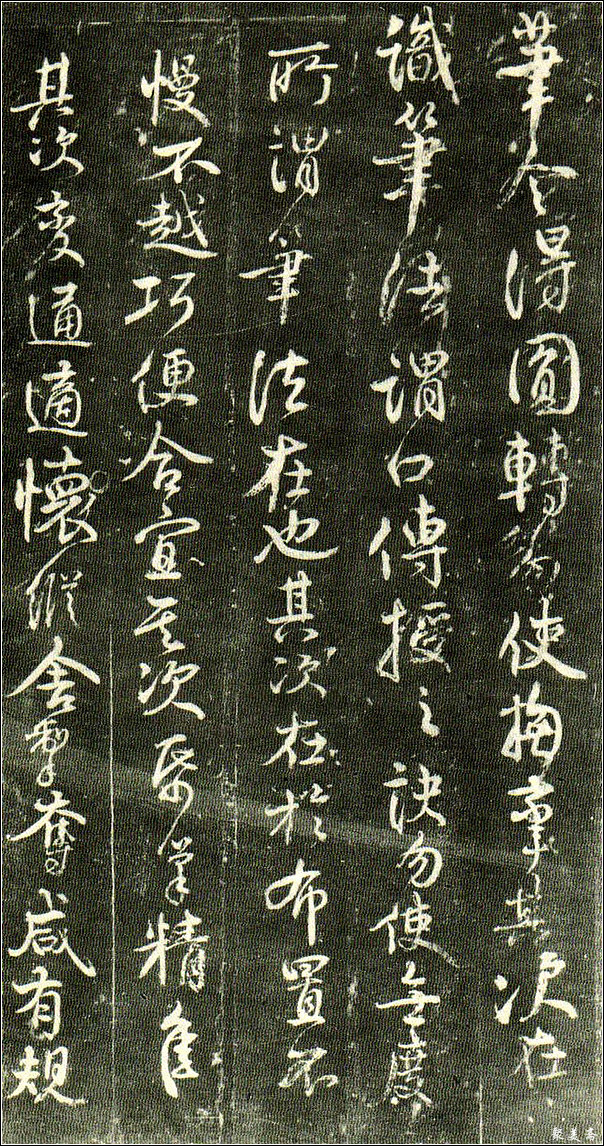 筆令得圓轉勿使拘束其次在
識筆法謂口傳授之訣勿使無度
所謂筆法在也其次在於布置不
慢不越巧便合宜其次紙筆精佳
其次變通適懷縱舍掣奪咸有規